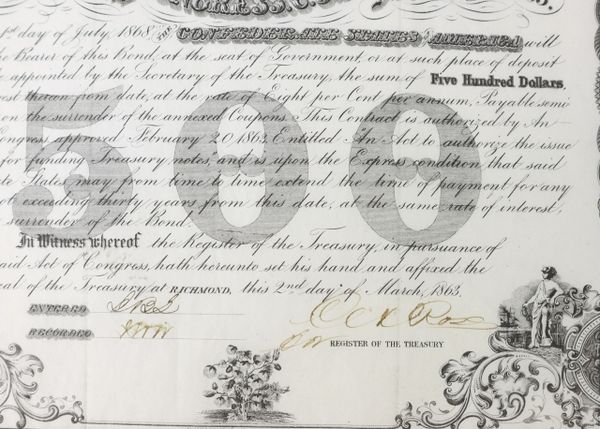 1st day of July, 1868, THE CONFEDERATE STATES OF AMERICA will
the Bearer of this Bond, at the seat of Government, or at such place of deposit
be appointed by the Secretary of the Treasury, the sum of Five Hundred Dollars,
thereon from date, at the rate of Eight per Cent per annum, Payable semi
on the surrender of the annexed Coupons. This Contract is authorized by An
Congress, approved February 20, 1863, Entitled An Act to authorize the issue
for funding Treasury notes, and is upon the Express condition that said
States, may from time to time extend the time of payment for any
not exceeding thirty years from this date, at the same rate of interest,
surrender of the Bond.
500
In Witness whereof the Register of the Treasury, in pursuance of
said Act of Congress, hath hereunto set his hand and affixed the
seal of the Treasury at RICHMOND, this 2nd day of March, 1863.
ENTERED
RECORDED
REGISTER OF THE TREASURY